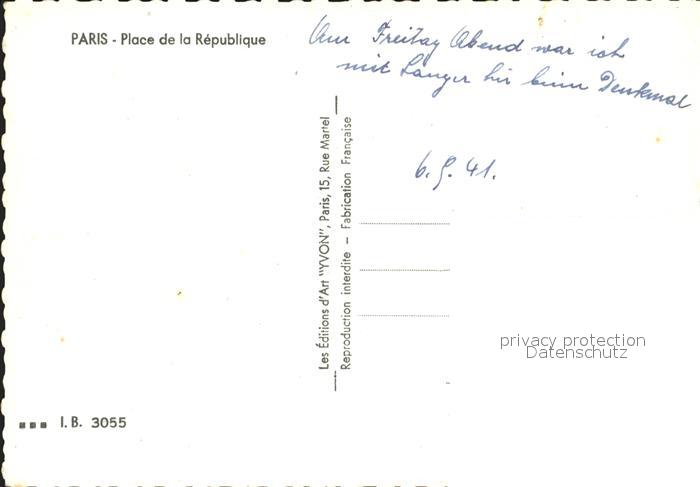 PARIS - Place de la République
Am Freitag Abend war ich
mit Langer hir beim Denkmal
6.9.41.
Les Éditions d'Art "YVON", Paris, 15, Rue Martel
Reproduction interdite – Fabrication Française
privacy protection
Datenschutz
I.B. 3055